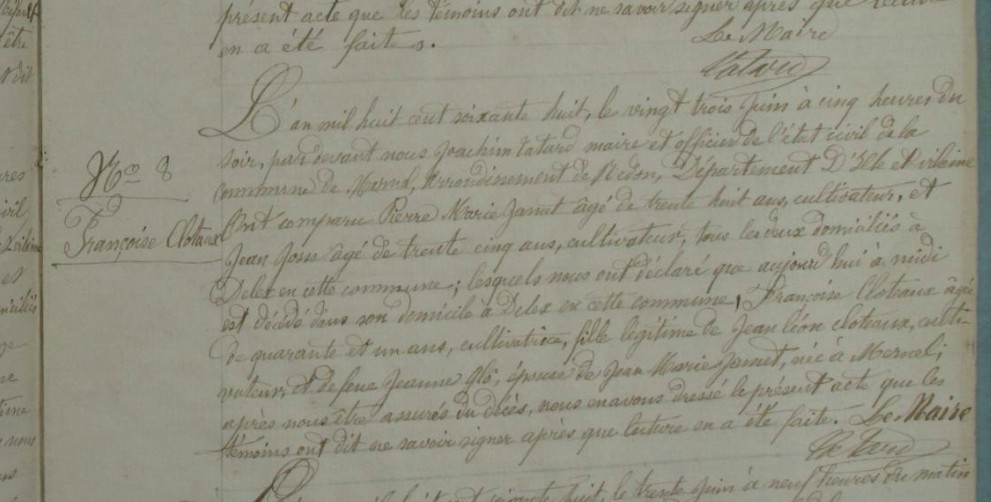 présent acte que les témoins ont dit ne savoir signer après que lecture
en a été faite.
Le Maire
L'an mil huit cent soixante huit, le vingt trois Juin à cinq heures du
soir, par devant nous Joachim Tatard maire et officier de l'état civil de la
commune de Mernel, Arrondissement de Redon, Département D'Ille et vilaine
Ont comparu Pierre Marie Jamet âgé de trente huit ans, cultivateur, et
Jean Josse âgé de trente cinq ans, cultivateur, tous les deux domiciliés à
en cette commune; lesquels nous ont déclaré que aujourd'hui à midi
est décédé dans son domicile à en cette commune, Françoise Cloteaux âgée
de quarante et un ans, cultivatrice, fille légitime de Jean léon cloteaux, culti-
vateur, et de feue Jeanne Glô, épouse de Jean Marie Jamet, née à Mernel;
après nous être assurés du décès, nous en avons dressé le présent acte que les
témoins ont dit ne savoir signer après que lecture en a été faite. Le Maire
huit, le trente Juin à neuf heures du matin
No 8
Françoise Cloteaux